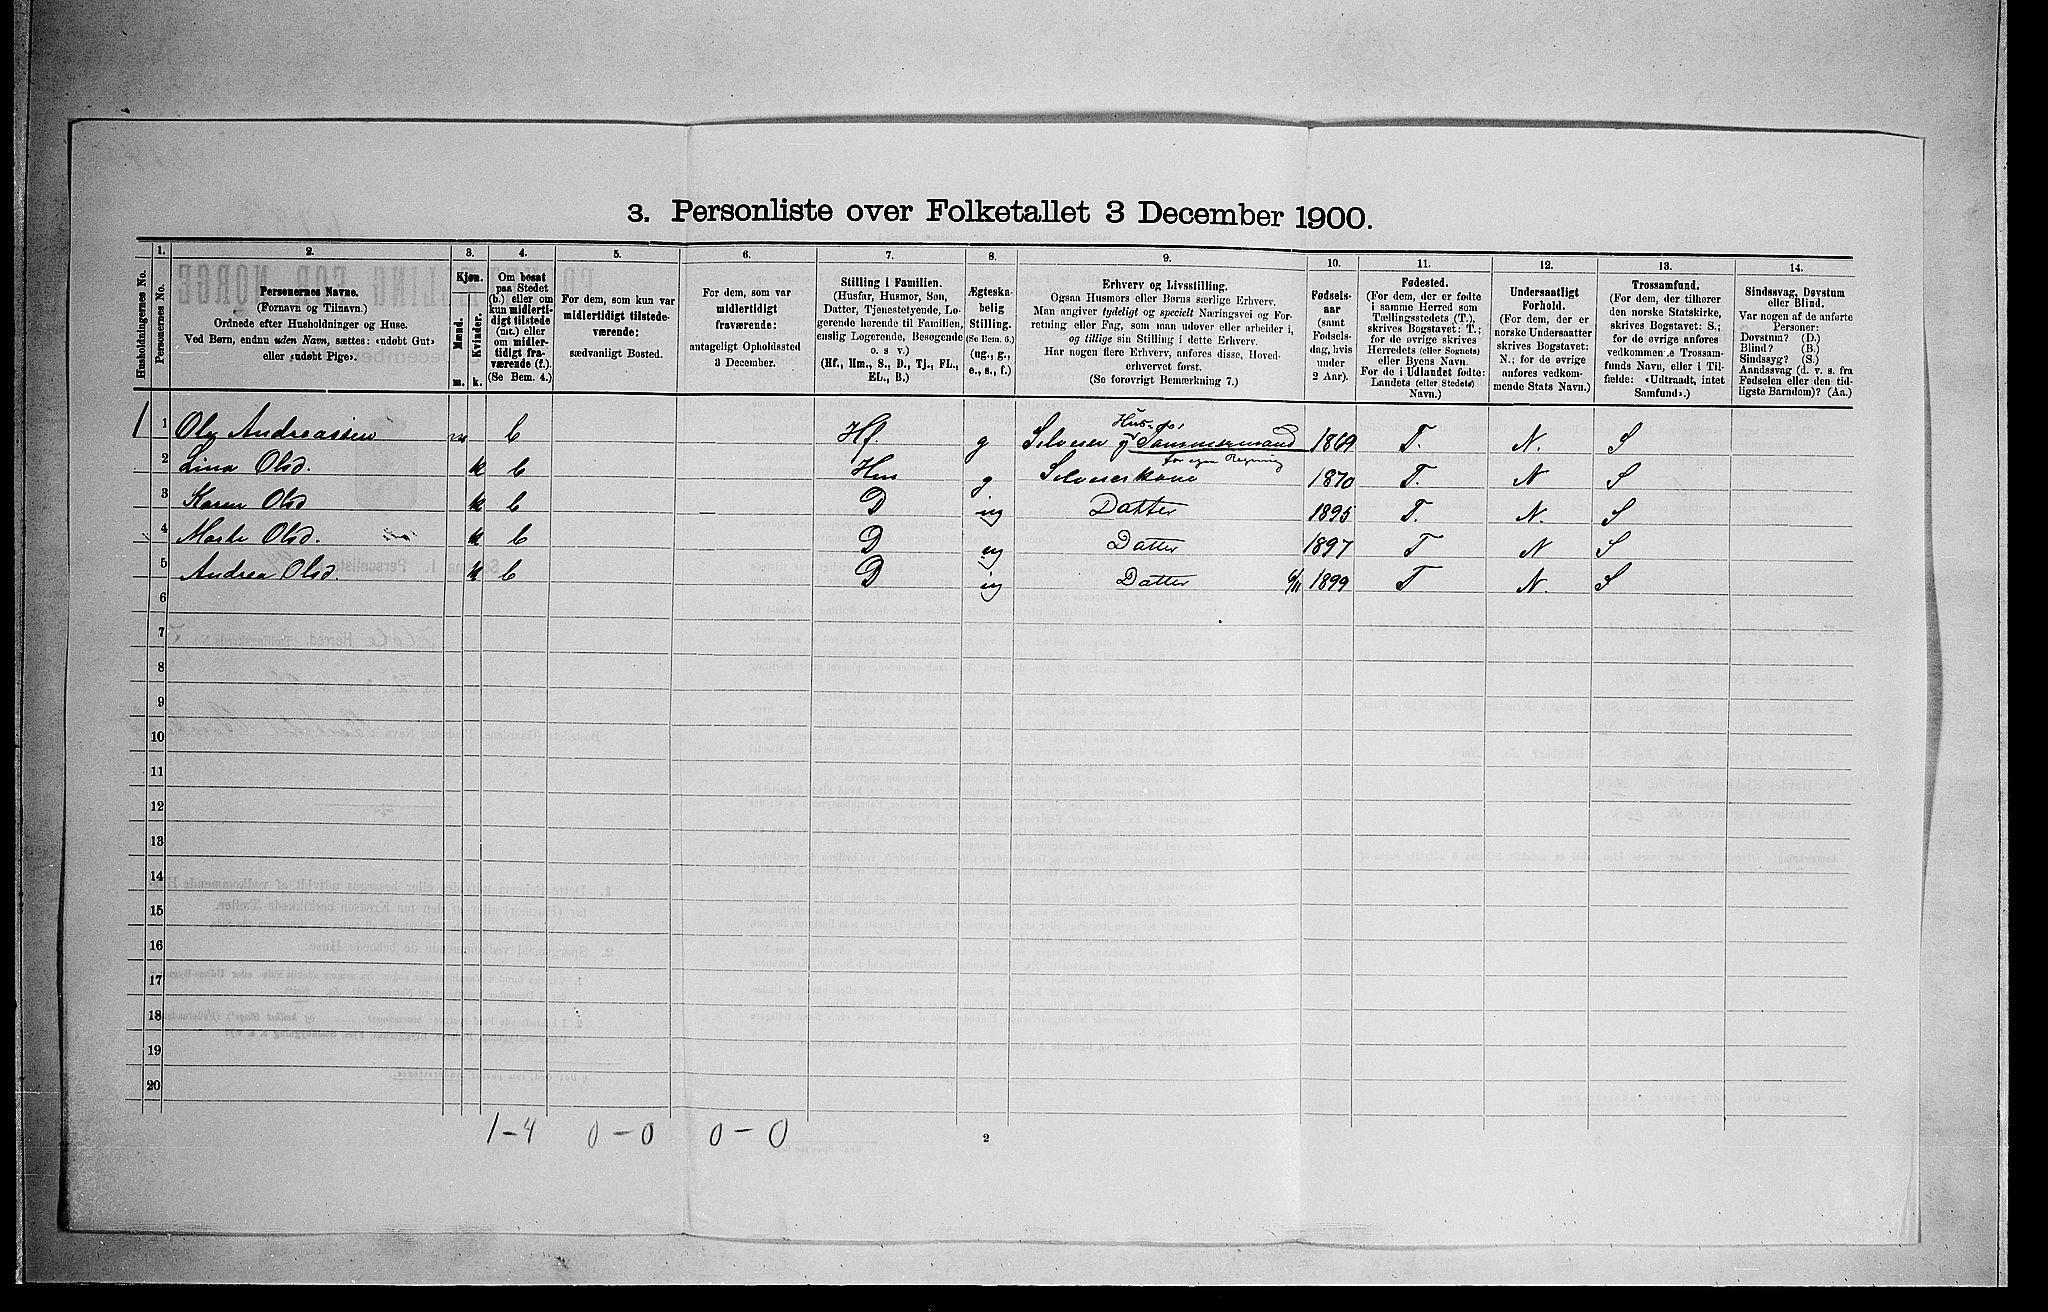 3. Personliste over Folketallet 3 December 1900.
Husholdningernes No.
1.
Personernes No.
2.
Personernes Navne.
(Fornavn og Tilnavn.)
Ordnede efter Husholdninger og Huse.
Ved Børn, endnu uden Navn, sættes: «udøbt Gut»
eller «udøbt Pige».
3.
Kjøn.
Mænd.
Kvinder.
m. k.
4.
Om bosat
paa Stedet
(b.) eller om
kun midlerti-
digt tilstede
(mt.) eller
om midler-
tidigt fra-
værende (f.).
(Se Bem. 4.)
5.
For dem, som kun var
midlertidigt tilstede-
værende:
sædvanligt Bosted.
6.
For dem, som var
midlertidigt
fraværende:
antageligt Opholdssted
3 December.
7.
Stilling i Familien.
(Husfar, Husmor, Søn,
Datter, Tjenestetyende, Lo-
gerende hørende til Familien,
enslig Logerende, Besøgende
o. s. v.)
(Hf., Hm., S., D., Tj., FL.,
EL., B.)
8.
Ægteska-
belig
Stilling.
(Se Bem. 6.)
(ug., g.,
e., s., f.)
9.
Erhverv og Livsstilling.
Ogsaa Husmors eller Børns særlige Erhverv.
Man angiver tydeligt og specielt Næringsvei og For-
retning eller Fag, som man udøver eller arbeider i,
og tillige sin Stilling i dette Erhverv.
Har nogen flere Erhverv, anføres disse, Hoved-
erhvervet først.
(Se forøvrigt Bemærkning 7.)
10.
Fødsels-
aar
(samt
Fødsels-
dag, hvis
under
2 Aar).
11.
Fødested.
(For dem, der er fødte
i samme Herred som
Tællingsstedets (T.),
skrives Bogstavet: T.;
for de øvrige skrives
Herredets (eller Sognets)
eller Byens Navn.
For de i Udlandet fødte:
Landets (eller Stedets)
Navn.)
12.
Undersaatligt
Forhold.
(For dem, der er
norske Undersaatter
skrives Bogstavet:
N.; for de øvrige
anføres vedkom-
mende Stats Navn.)
13.
Trossamfund.
(For dem, der tilhører
den norske Statskirke,
skrives Bogstavet: S.;
for de øvrige anføres
vedkommende Trossam-
funds Navn, eller i Til-
fælde: «Udtraadt, intet
Samfund».)
14.
Sindssvag, Døvstum
eller Blind.
Var nogen af de anførte
Personer:
Døvstum? (D.)
Blind? (B.)
Sindssyg? (S.)
Aandssvag (d. v. s. fra
Fødselen eller den tid-
ligste Barndom)? (Aa.)
1 1 Ole Andreassen m b Hf g Selveier Hus og Tømmermand 1869 T. N. S
for egen Regning
2 Lina Olsd. k b Hm g Selveierkone 1870 T. N S
3 Karen Olsd k b D ug Datter 1895 T. N. S
4 Marte Olsd. k b D ug Datter 1897 T N S
5 Andrea Olsd. k b D ug Datter 6/11 1899 T N. S
6
7
8
9
10
11
12
13
14
15
16
17
18
19
20
1-4 0-0 0-0
2